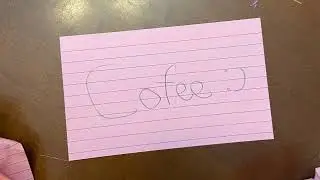 Cofee :)